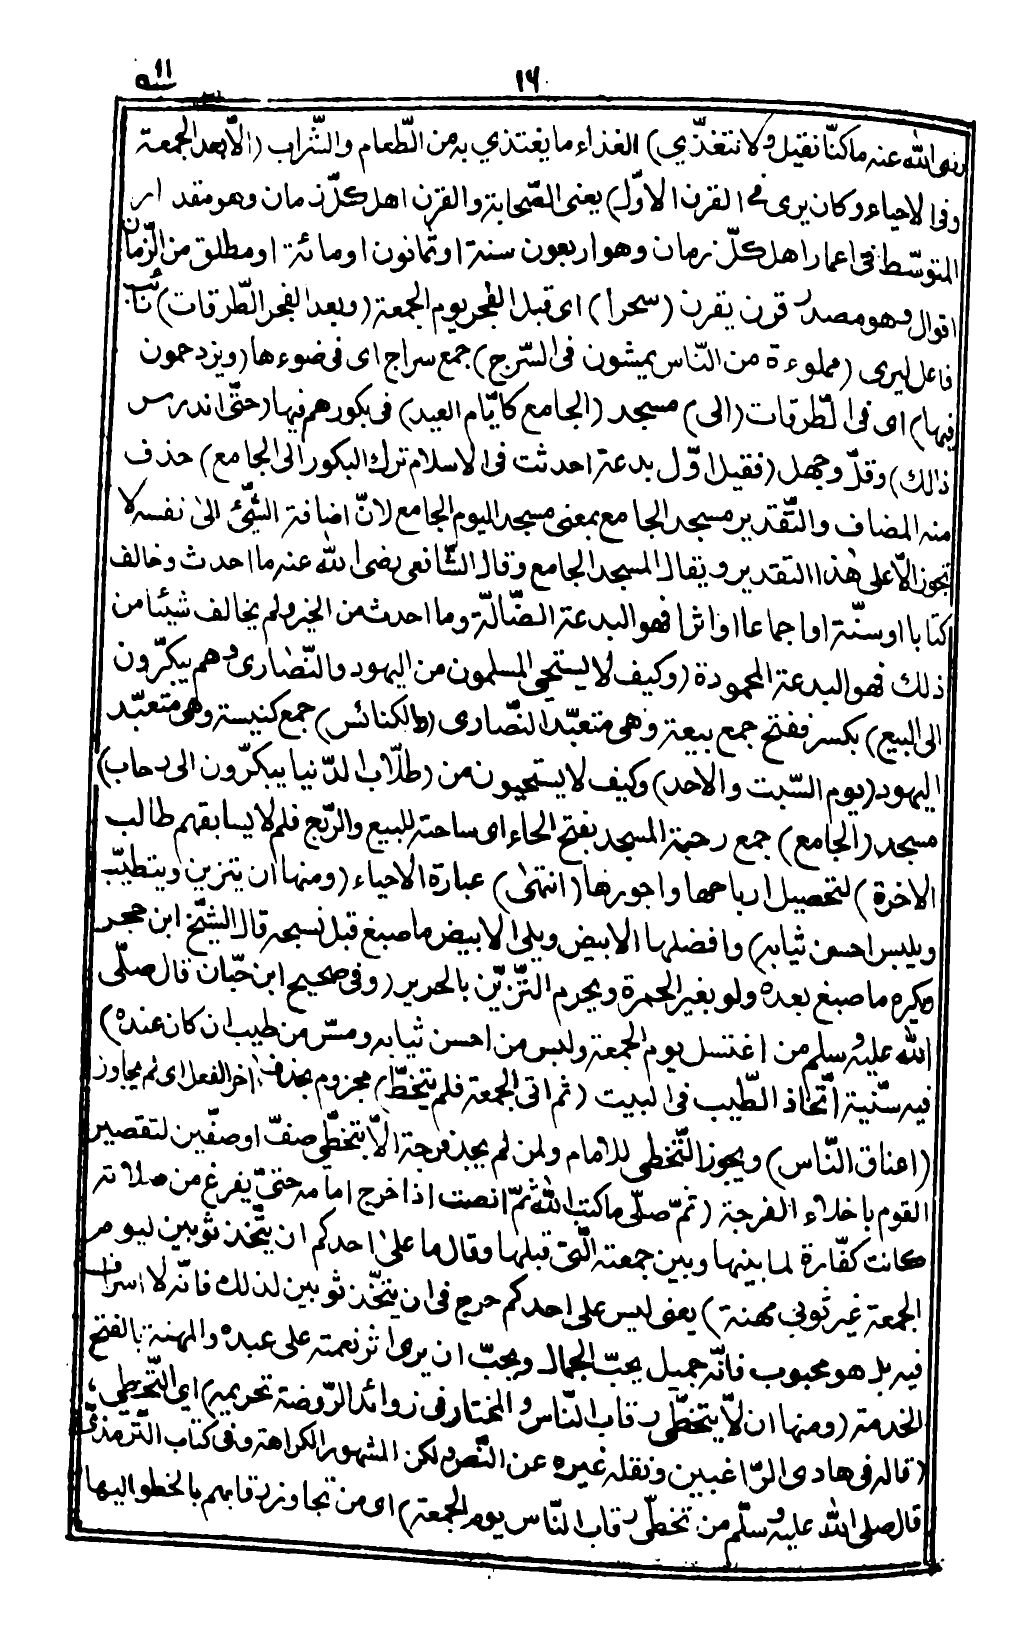 ١٦
رضى الله عنه ما كنّا نقيل ولا نتغذّي) الغذاء ما يغتذي به من الّطعام والشّراب (الّا بعد الجمعة
وفى الاحياء وكان يرى فى القرن الاوّل) يعنى الصّحابة والقرن اهل كلّ زمان وهو مقدار
المتوسّط فى اعمار اهل كلّ زمان وهو اربعون سنة او ثمانون او مائة او مطلق من الزّمان
اقوال وهو مصدر قرن يقرن (سحرا) اى قبل الفجر يوم الجمعة (وبعد الفجر الطّرقات) نائب
فاعل ليرى (مملوءة من النّاس يمشون فى السّرج) جمع سراج اى فى ضوءها (ويزدحمون
فيها) اى فى الطّرقات (الى) مسجد (الجامع كايّام العيد) فى بكورهم فيها (حتّى اندرس
ذالك) وقلّ وجهل (فقيل اوّل بدعة احدثت فى الاسلام ترك البكور الى الجامع) حذف
منه المضاف والتّقدير مسجد الجامع بمعنى مسجد اليوم الجامع لانّ اضافة الشّيئ الى نفسه لا
تجوز الّا على هٰذا التقدير ويقال المسجد الجامع وقال الشّافعى رضى الله عنه ما احدث وخالف
كتابا او سنّة او اجماعا او اثرا فهو البدعة الضّالّة وما احدث من الخير ولم يخالف شيئا من
ذلك فهو البدعة المحمودة (وكيف لا يستحي المسلمون من اليهود والنّصارى وهم يبكّرون
الى البيع) بكسر ففتح جمع بيعة وهى متعبّد النّصارى (والكنائس) جمع كنيسة وهى متعبّد
اليهود (يوم السّبت والاحد) وكيف لا يستحيون من (طلّاب الدّنيا يبكّرون الى رحاب)
مسجد (الجامع) جمع رحبة المسجد بفتح الحاء اى ساحته للبيع والرّبح فلم لا يسابقهم طالب
الاخرة) لتحصيل ارباحها واجورها (انتهىٰ) عبارة الاحياء (ومنها ان يتزين ويتطيّب
ويلبس احسن ثيابه) وافضلها الابيض ويلى الابيض ما صبغ قبل نسجه قال الشّيخ ابن حجر
ويكره ما صبغ بعده ولو بغير الحمرة ويحرم التّزيّن بالحرير (وفى صحيح ابن حبّان قال صلّى
الله عليه وسلم من اغتسل يوم الجمعة ولبس من احسن ثيابه ومسّ من طيب ان كان عنده)
فيه سنّية اتّخاذ الطّيب فى البيت (ثم اتى الجمعة فلم يتخطّ) مجزوم بحذف اٰخر الفعل اى لم يجاوز
(اعناق النّاس) ويجوز التّخطى للامام ولمن لم يجد فرجة الّا بتخطّى صفّ او صفّين لتقصير
القوم باخلاء الفرجة (ثمّ صلّى ما كتب الله ثمّ انصت اذا خرج امامه حتىّ يفرغ من صلاته
كانت كفّارة لما بينها وبين جمعته الّتى قبلها وقال ما علىٰ احدكم ان يتّخذ ثوبين ليوم
الجمعة غير ثوبي مهنة) يعنى ليس على احدكم حرج فى ان يتّخذ ثوبين لذلك فانّه لا اسراف
فيه بل هو محبوب فانّه جميل يحبّ الجمال ويحبّ ان يرى اثر نعمته على عبده والمهنة بالفتح
الخدمة (ومنها ان لّا يتخطّى رقاب النّاس والمختار فى زوائد الرّوضة تحريمه) اى التّخطى،
(قاله فى هادى الرّاغبين ونقله غيره عن النّص ولكن المشهور الكراهة وفى كتاب التّرمذىّ
قال صلى الله عليه وسلّم من تخطّى رقاب النّاس يوم الجمعة) اى من تجاوز رقابهم بالخطو اليها